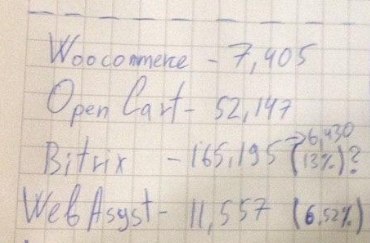 Woocommerce - 7,405
Open Cart - 52,147
→6,430
Bitrix - 165,195 (13%)?
WebAsyst - 11,557 (6,52%)